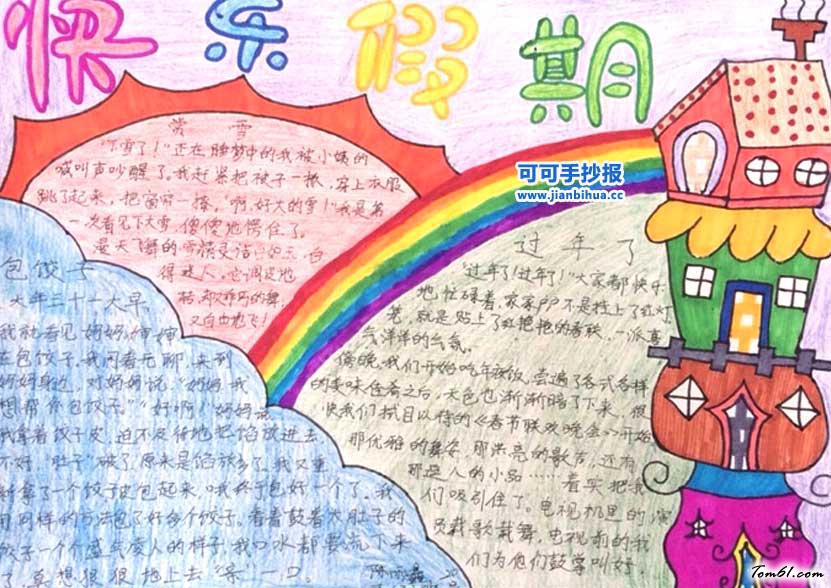 快乐假期
赏雪
"下雪了!"还在睡梦中的我被小姨的
喊叫声吵醒了,我赶紧把被子一撤,穿上衣服
跳了起来,把窗帘一撩,"啊,好大的雪!"我是第
一次看见下大雪,傻傻地愣住了。
漫天飞舞的雪
又自由地飞!
可可手抄报
www.jianbihua.cc
过年了
"过年了!过年了!"大家都快乐
地忙碌着,家家户户不是挂上了红灯
笼,就是贴上了红艳艳的春联,一派喜
气洋洋的气氛。
傍晚,我们开始吃年夜饭,尝遍了各式各样
的美味佳肴之后,天色也渐渐暗了下来,很
快我们拭目以待的《春节联欢晚会》开始
那优雅的舞姿,那洪亮的歌声,还有
那逗人的小品……着实把我
们吸引住了。电视机里的演
员载歌载舞,电视前的我
们为他们鼓掌叫好。
包饺子
大年三十一大早
我就看见妈妈,婶婶
在包饺子,我闲着无聊,来到
妈妈身边,对妈妈说:"妈妈,我
想帮你包饺子。""好啊!"妈妈说
我拿着饺子皮,迫不及待地把馅放进去
不好,"肚子"破了,原来是馅放多了,我又重
新拿了一个饺子皮包起来,哦终于包好一个了。我
用同样的方法包了好多个饺子。看着鼓着大肚子的
饺子一个个盛气凌人的样子,我口水都要流下来
了,真想狠狠地上去"亲"一口。
Tom61.com